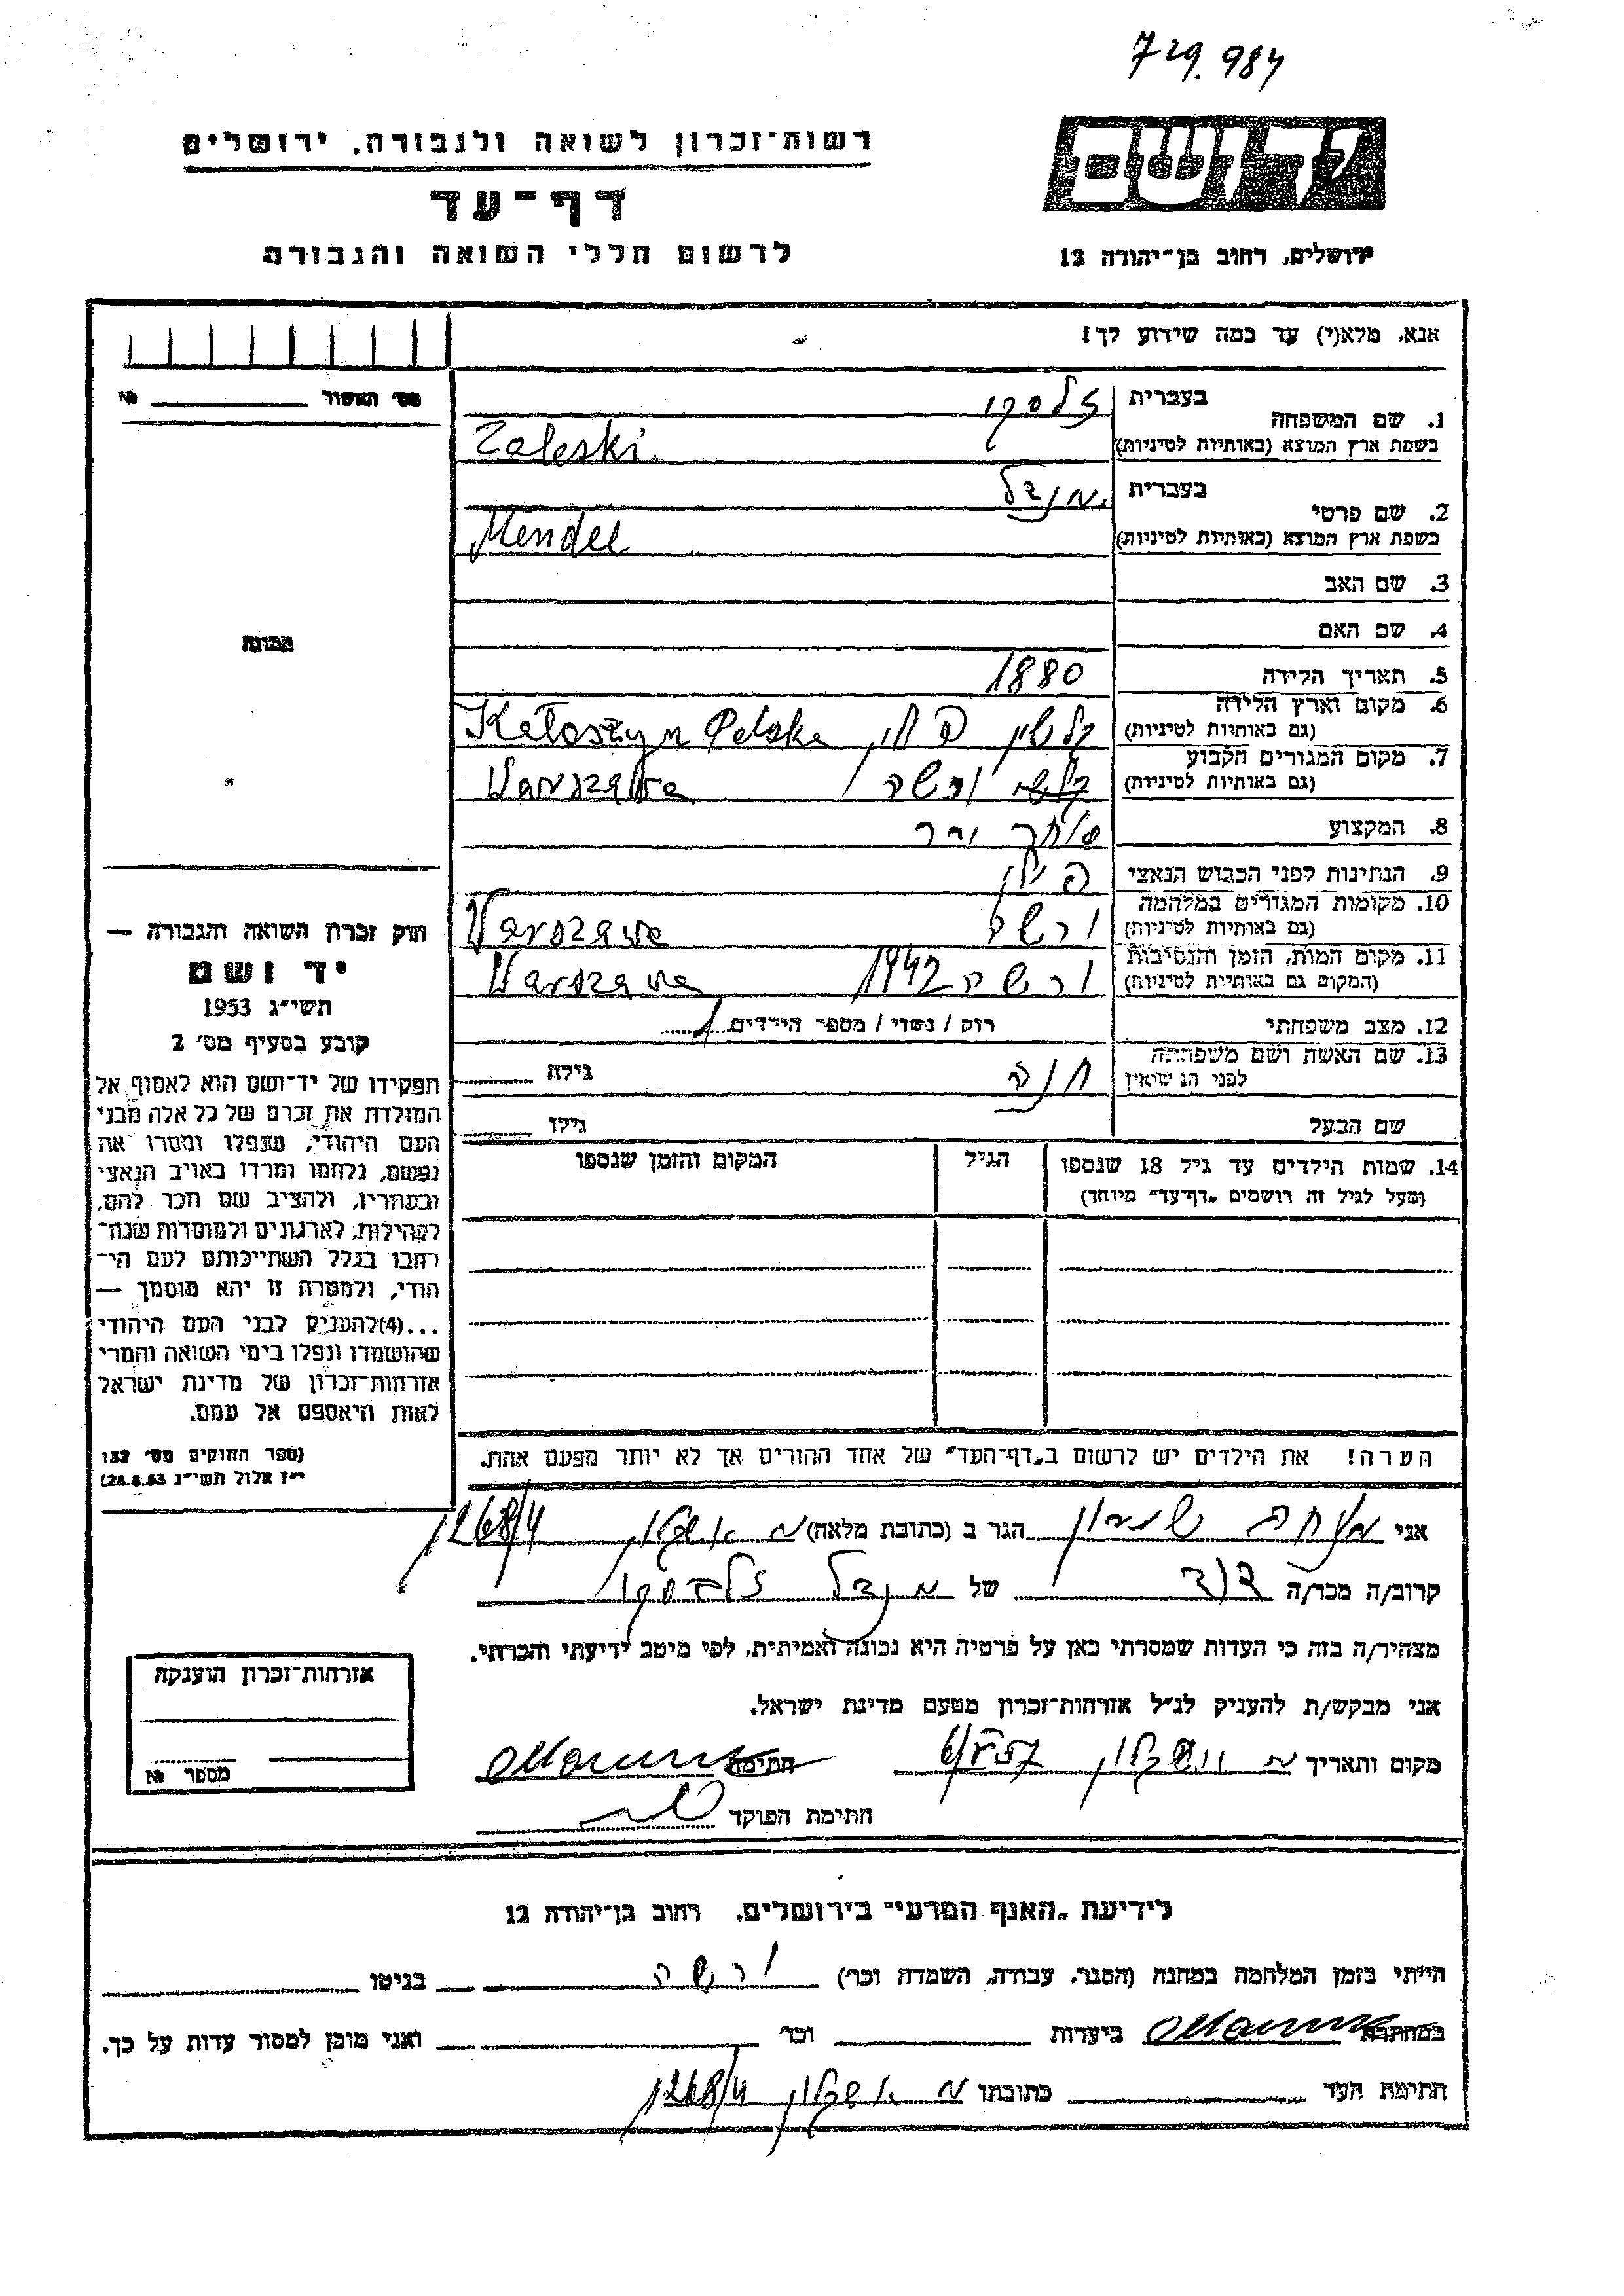 729.984
יד ושם
רשות-זכרון לשואה ולגבורה, ירושלים
דף-עד
לרשום חללי השואה והגבורה
ירושלים, רחוב בן-יהודה 12
אנא, מלא(י) עד כמה שידוע לך!
מס׳ האשור № ________
1. שם המשפחה בעברית זלסקי
בשפת ארץ המוצא (באותיות לטיניות) Zaleski
2. שם פרטי בעברית מנדל
בשפת ארץ המוצא (באותיות לטיניות) Mendel
3. שם האב
4. שם האם
התמונה
5. תאריך הלידה 1880
6. מקום וארץ הלידה
(גם באותיות לטיניות) קלושין פולין Kałoszyn Polska
7. מקום המגורים הקבוע
(גם באותיות לטיניות) ורשה Warszawa
8. המקצוע סוחר
9. הנתינות לפני הכבוש הנאצי פולין
10. מקומות המגורים במלחמה
(גם באותיות לטיניות) ורשה Warszawa
11. מקום המות, הזמן והנסיבות
(המקום גם באותיות לטיניות) ורשה 1942 Warszawa
12. מצב משפחתי רווק / נשוי / מספר הילדים 1
13. שם האשה ושם משפחתה
לפני הנשואין חנה גילה
שם הבעל גילו
14. שמות הילדים עד גיל 18 שנספו הגיל המקום והזמן שנספו
(מעל לגיל זה רושמים „דף-עד" מיוחד)
חוק זכרון השואה והגבורה —
יד ושם
תשי״ג 1953
קובע בסעיף מס׳ 2
תפקידו של יד-ושם הוא לאסוף אל
המולדת את זכרם של כל אלה מבני
העם היהודי, שנפלו ומסרו את
נפשם, נלחמו ומרדו באויב הנאצי
ובעוזריו, ולהציב שם וזכר להם,
לקהילות, לארגונים ולמוסדות שנח-
רבו בגלל השתייכותם לעם הי-
הודי, ולמטרה זו יהא מוסמך —
...(4)להעניק לבני העם היהודי
שהושמדו ונפלו בימי השואה והמרי
אזרחות-זכרון של מדינת ישראל
לאות היאספם אל עמם.
(ספר החוקים מס׳ 132
י״ז אלול תשי״ג 28.8.53)
הערה! את הילדים יש לרשום ב„דף-העד" של אחד ההורים אך לא יותר מפעם אחת.
אני הגר ב (כתובת מלאה) אשקלון 1268/4
קרוב/ה מכר/ה דוד של מנדל
מצהיר/ה בזה כי העדות שמסרתי כאן על פרטיה היא נכונה ואמיתית, לפי מיטב ידיעתי והכרתי.
אני מבקש/ת להעניק לנ״ל אזרחות-זכרון מטעם מדינת ישראל.
מקום ותאריך אשקלון חתימה
חתימת הפוקד
אזרחות-זכרון הוענקה
מספר №
לידיעת „האגף המדעי" בירושלים, רחוב בן-יהודה 12
הייתי בזמן המלחמה במחנה (הסגר, עבודה, השמדה וכו׳) ורשה בגיטו
במחתרת ביערות וכו׳ ואני מוכן למסור עדות על כך.
חתימת העד כתובתו אשקלון 1268/4